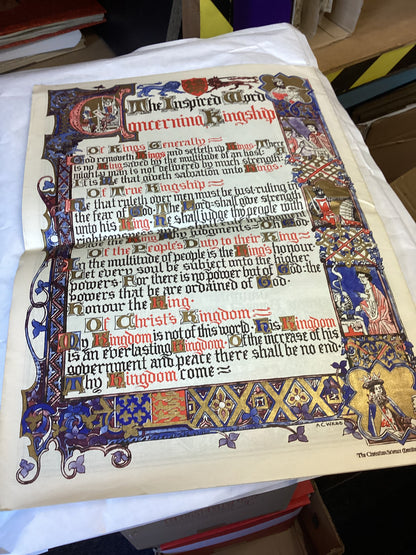 The Inspired Word
Concerning Kingship
Of Kings Generally
God removeth Kings and setteth up Kings There
is no King saved by the multitude of an host:
mighty man is not delivered by much strength:
It is He that giveth salvation unto Kings.
Of True Kingship
He that ruleth over men must be just ruling in
the fear of God: The Lord shall give strength
unto his King: He shall judge thy people with
King thy judgments O God
Of the People's Duty to their King
In the multitude of people is the King's honour
Let every soul be subject unto the higher
powers For there is no power but of God: the
powers that be are ordained of God
Honour the King.
Of Christ's Kingdom
My Kingdom is not of this world: His Kingdom
is an everlasting Kingdom. Of the increase of his
government and peace there shall be no end.
Thy Kingdom come
A.C. WEBB
The Christian Science Monitor